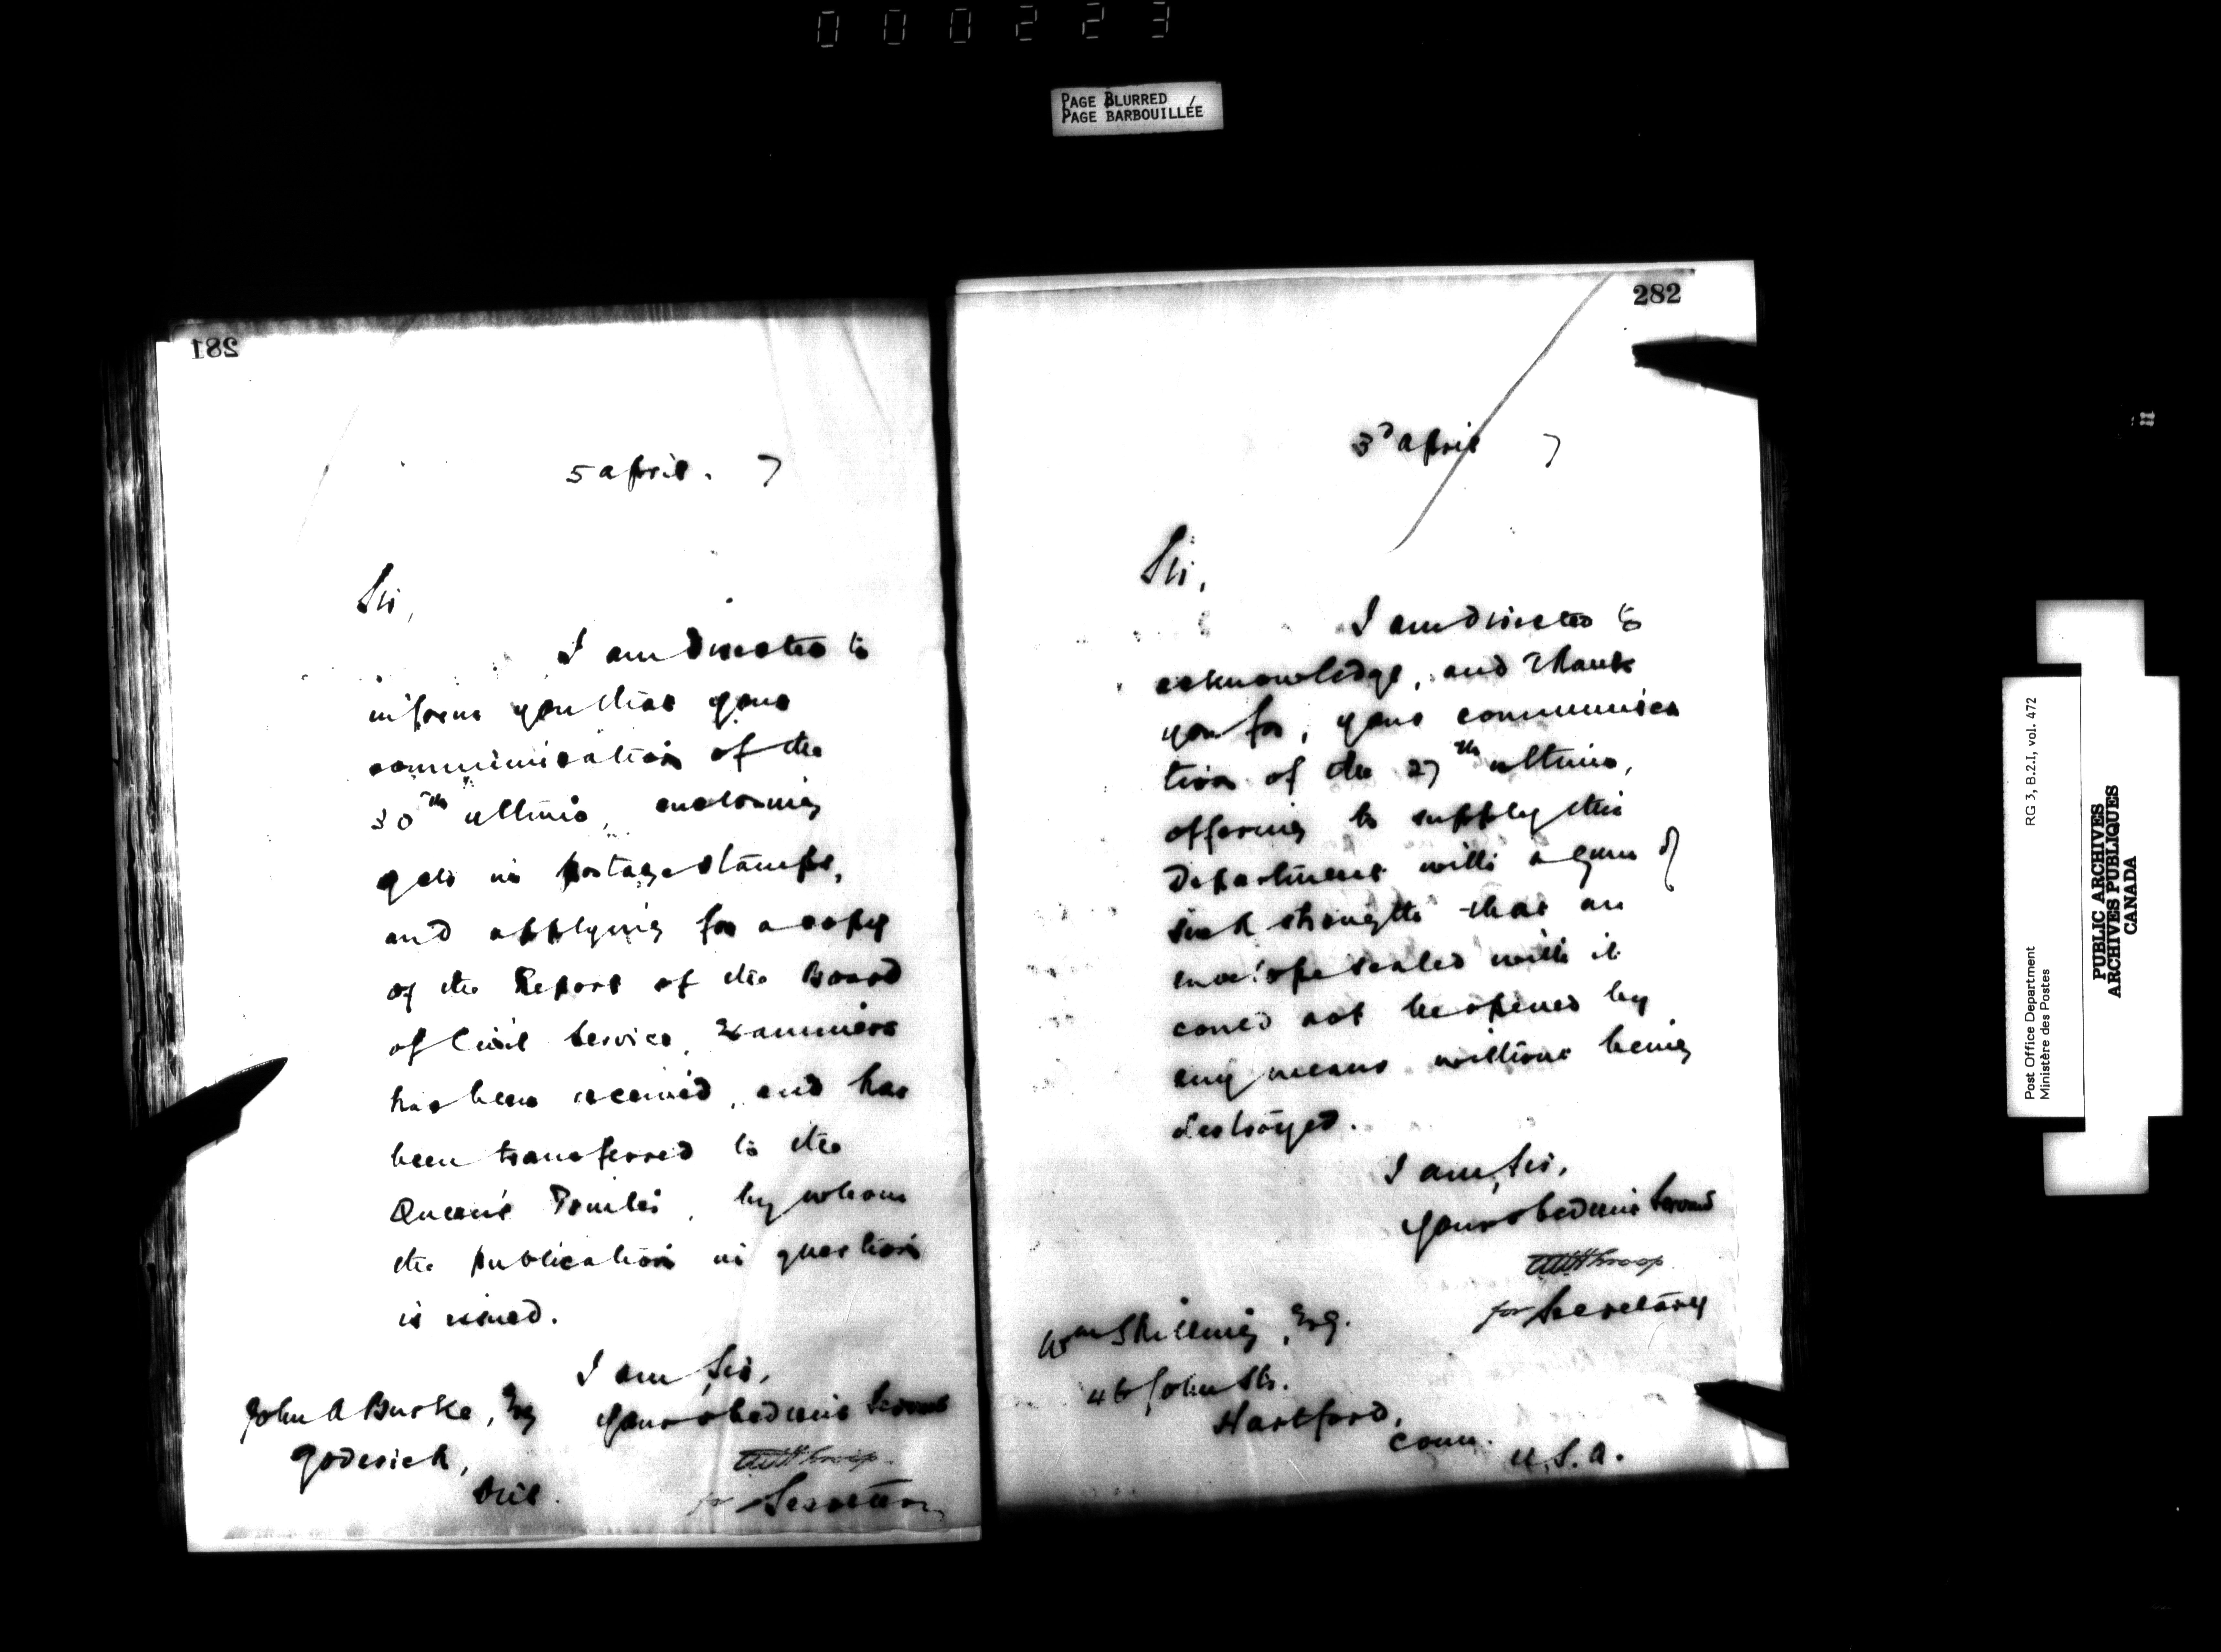 000223
PAGE BLURRED
PAGE BARBOUILLÉE
281
5 April. 7
Sir,
I am directed to
inform you that your
communication of the
30th ultimo, enclosing
in postage stamps,
and applying for a copy
of the Report of the Board
of Civil Service Examiners
has been received, and has
been transferred to the
Queen's Printer, by whom
the publication in question
is issued.
I am, Sir,
Your obedient Servant
for Secretary
John A Burke, Esq
Goderich,
Ont.
282
3d April 7
Sir,
I am directed to
acknowledge, and thank
you for, your communica
tion of the 27th ultimo,
offering to supply this
Department with a gum of
such strength that an
envelope sealed with it
could not be opened by
any means without being
destroyed.
I am, Sir,
Your obedient Servant
for Secretary
Wm Esq.
John St.
Hartford,
Conn.
U.S.A.
Post Office Department
Ministère des Postes
RG 3, B.2.I, vol. 472
PUBLIC ARCHIVES
ARCHIVES PUBLIQUES
CANADA